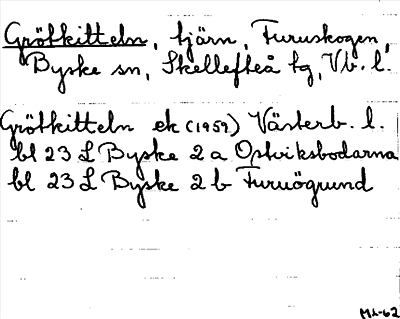 Grötkitteln, tjärn, Furuskogen,
Byske sn, Skellefteå tg, Vb. l.
Grötkitteln ek (1959) Västerb. l.
bl 23 L Byske 2 a Ostviksbodarna
bl 23 L Byske 2 b Furuögrund
ML-62